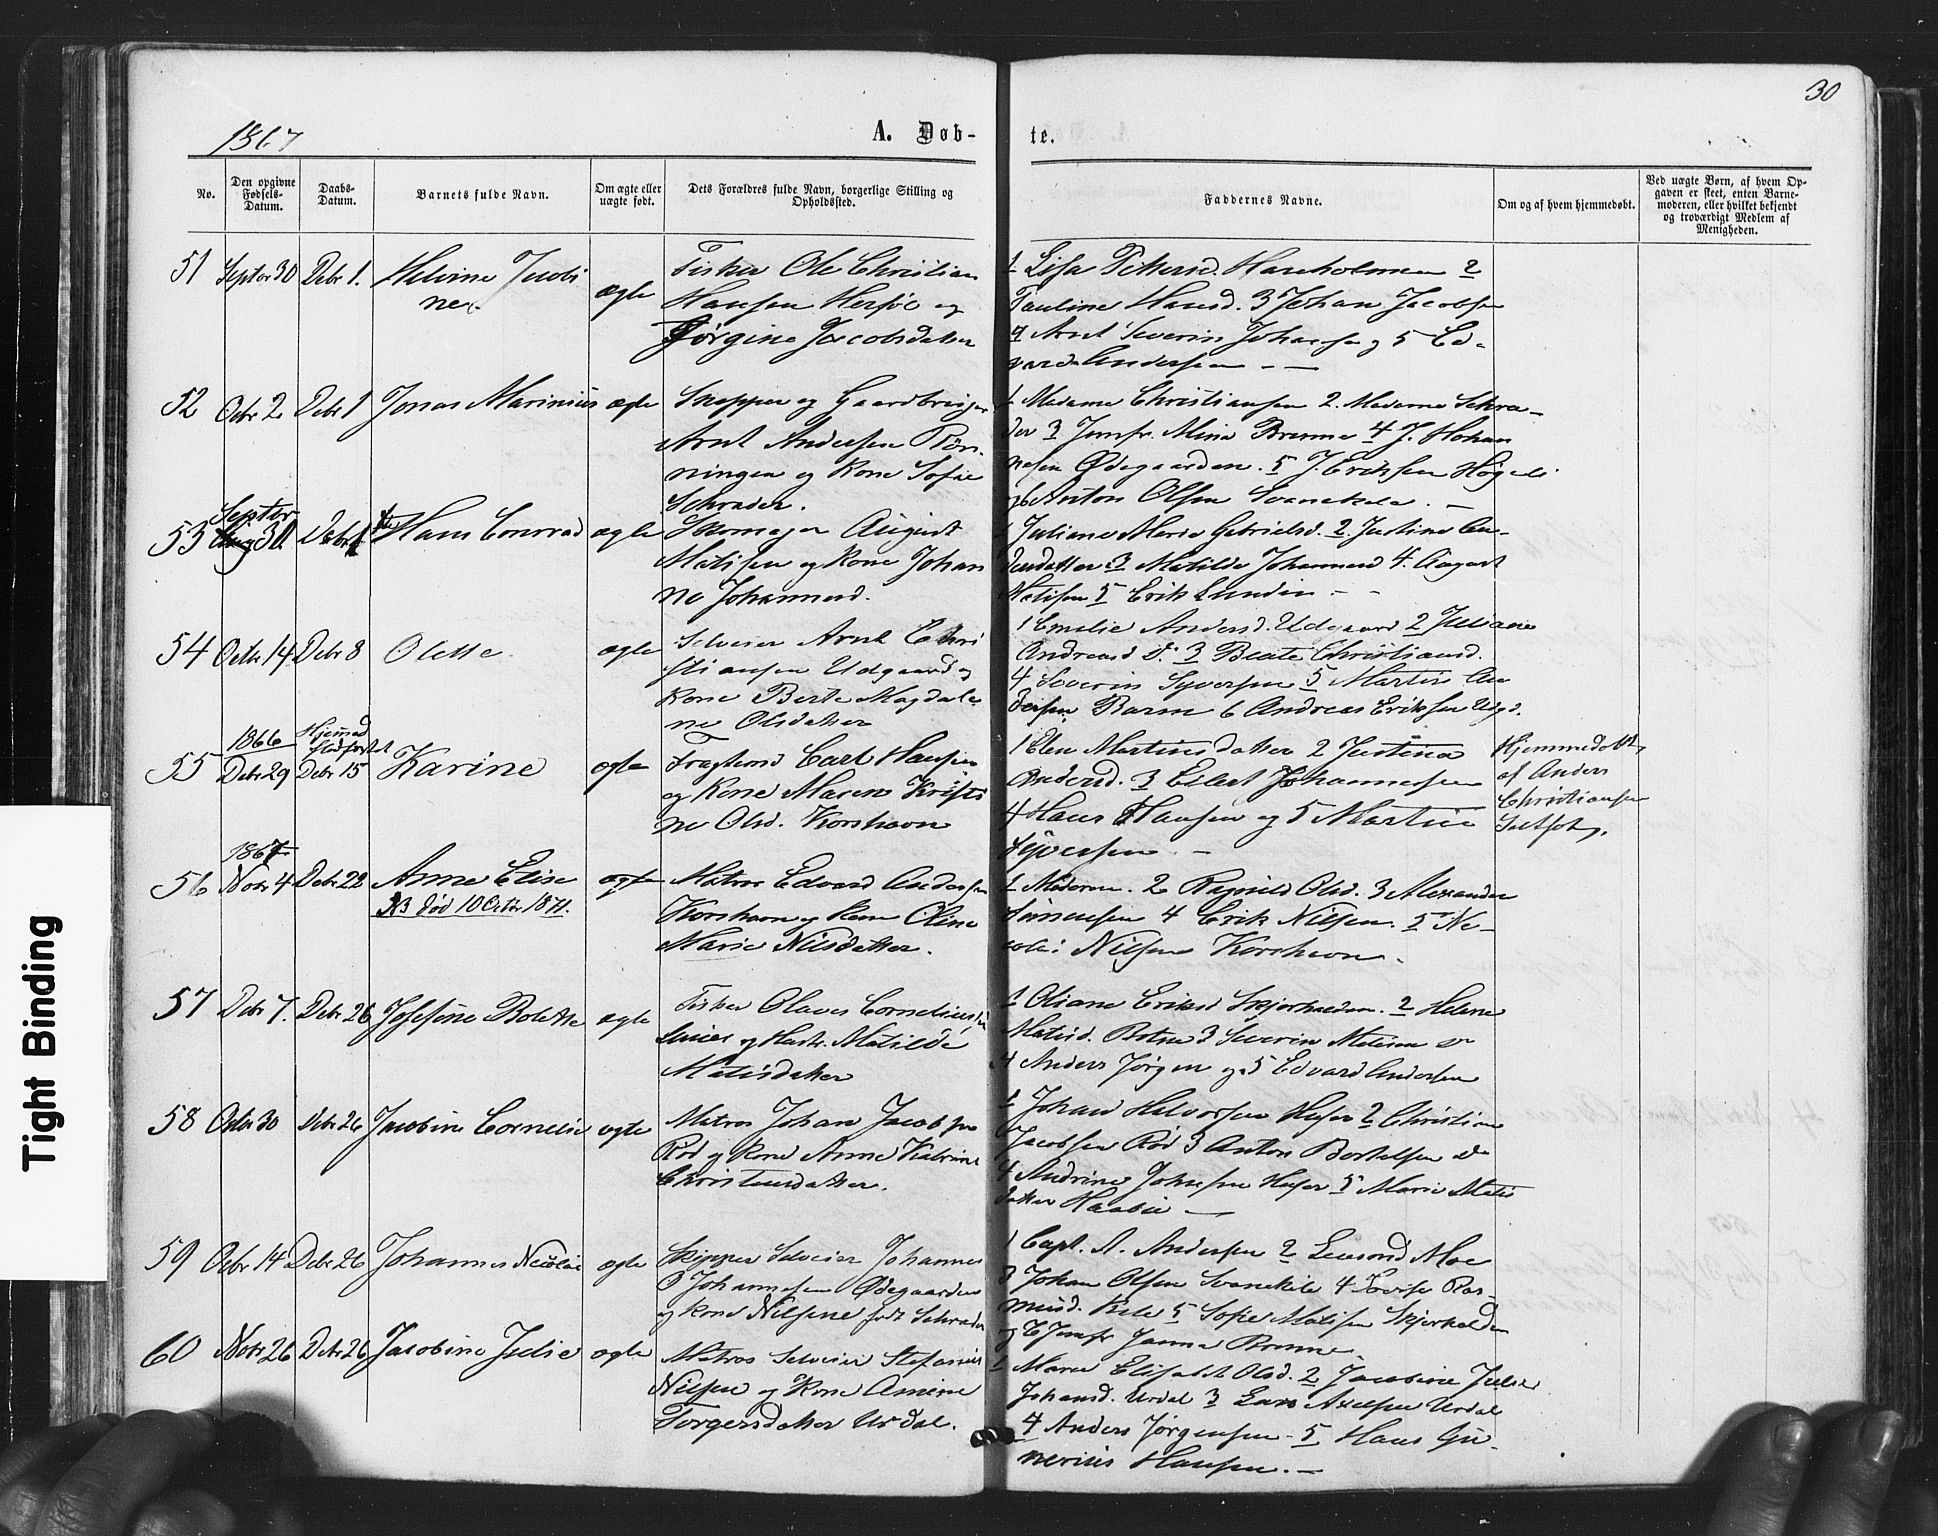 30
1867
A. Døb-
te.
No.
Den opgivne Fødsels-Datum.
Daabs-Datum.
Barnets fulde Navn.
Om ægte eller uægte født.
Dets Forældres fulde Navn, borgerlige Stilling og Opholdssted.
Faddernes Navne.
Om og af hvem hjemmedøbt.
Ved uægte Børn, af hvem Op-
gaven er skeet, enten Barne-
moderen, eller hvilket bekjendt
og troværdigt Medlem af
Menigheden.
51 Septbr 30 Debr 1. Helvine Jacobi
ne
ægte
Fisker Ole Christian
Hansen Herføl og
Jørgine Jacobsdatter
1 Lisa Pettersd. Hareholmen 2
Pauline Hansd. 3 Johan Jacobsen
4 Arnt Severin Johansen og 5 Ed-
vard Andersen
52 Octbr 2 Debr 1 Jonas Marinius ægte
Skipper og Gaardbruger
Arnt Andersen Røn-
ningen og Kone Sofie
Schrader.
1 Madame Christiansen 2. Madame Schra-
der 3 Jomfr. Mina Brenne 4 J. Johan
nesen Ødegaarden. 5 J. Eriksen
og 6 Anton Olsen Svanekile.
53 Septbr 30 Debr 1 Hans Conrad ægte
Skomager August
Matisen og Kone Johan
ne Johannesd.
1 Juliane Marie Gabrielsd. 2. Justine An-
dersdatter 3 Matilde Johannesd 4. August
Matisen 5 Erik Lundin
54 Octbr 14 Debr 8 Olette. ægte
Selveier Arnt Chri
stiansen Udgaard og
Kone Berte Magdale
ne Olsdatter
1 Emelie Andersd. Udgaard 2 Juliane
Andreasd d: 3 Beate Christiansd.
4 Severin Syversen 5 Martin An
dersen Barm 6 Andreas Eriksen Udg.
55 1866 Debr 29
Hjemmed. Stadfæstet Debr 15 Karine ægte
Fragtmd Carl Hansen
og Kone Maren Kristi
ne Olsd. Korshavn
1 Elen Martinsdatter 2 Justina
Andersd. 3 Eilert Johannesen
4 Hans Hansen og 5 Martin
Syversen
Hjemmedøbt
af Anders
Christiansen
56 1867 Novbr 4 Debr 22 Anne Elise
NB død 10 Octbr 1871.
ægte
Matros Edvard Andersen
Korshavn og Kone Oline
Marie Nilsdatter.
1 Moderen. 2 Ragnild Olsd. 3 Alexander
Simensen 4 Erik Nilsen. 5 Ne-
colai Nilsen Korshavn
57 Debr 7. Debr 26 Josefine Bolette ægte
Fisker Olaves Cornelius
og Hustr. Matilde
Matisdatter
1 Oliane Eriksd Skjærhalden. 2 Helene
Matisd. Botne 3 Severin Matisen
4 Anders Jørgen og 5 Edvard Andersen
58 Octbr 30 Debr 26 Jacobine Cornelie ægte
Matros Johan Jacobsen
Rød og Kone Anne Katrine
Christensdatter.
1 Johan Halvorsen Huser 2 Christian
Jacobsen Rød 3 Anton Bertelsen
4 Andrine Johnsen Huser 5 Marie Matis
datter
59 Octbr 14 Debr 26 Johannes Nicolai ægte
Skipper Selveier Johannes
Johannesen Ødegaarden
og Kone Nilsine født Schrader
1 Capt. A. Andersen 2 Moe
3 Johan Olsen Svanekile 4 Lovise Ras-
musd. Kile 5 Sofie Matisen Skjærhalden
og 6 Jomfr Janna Brenne.
60 Novbr 26 Debr 26 Jacobine Julie ægte
Matros Selveier Stefanius
Nilsen og Kone Amine
Torgersdatter Urdal.
1 Maren Elisabet Olsd. 2 Jacobine Julie
Johansd. Urdal 3 Lars Axelsen Urdal
4 Anders Jørgensen 5 Hans Gu-
nerius Hansen.
Tight Binding